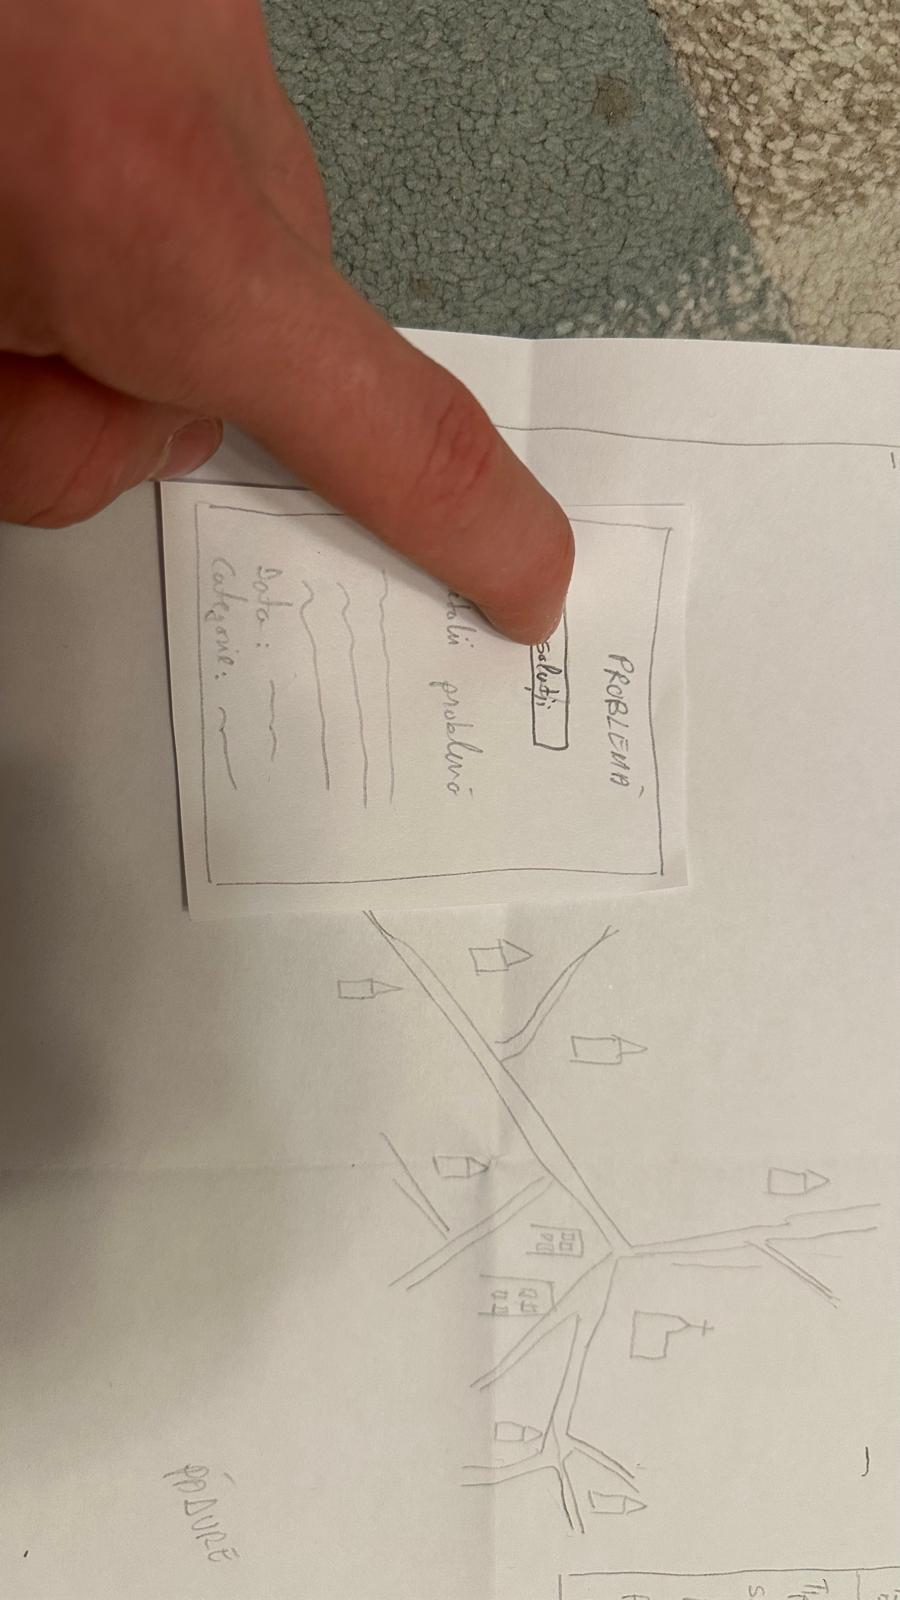 PROBLEMĂ
soluții
problemă
Data:
Categorie:
PĂDURE